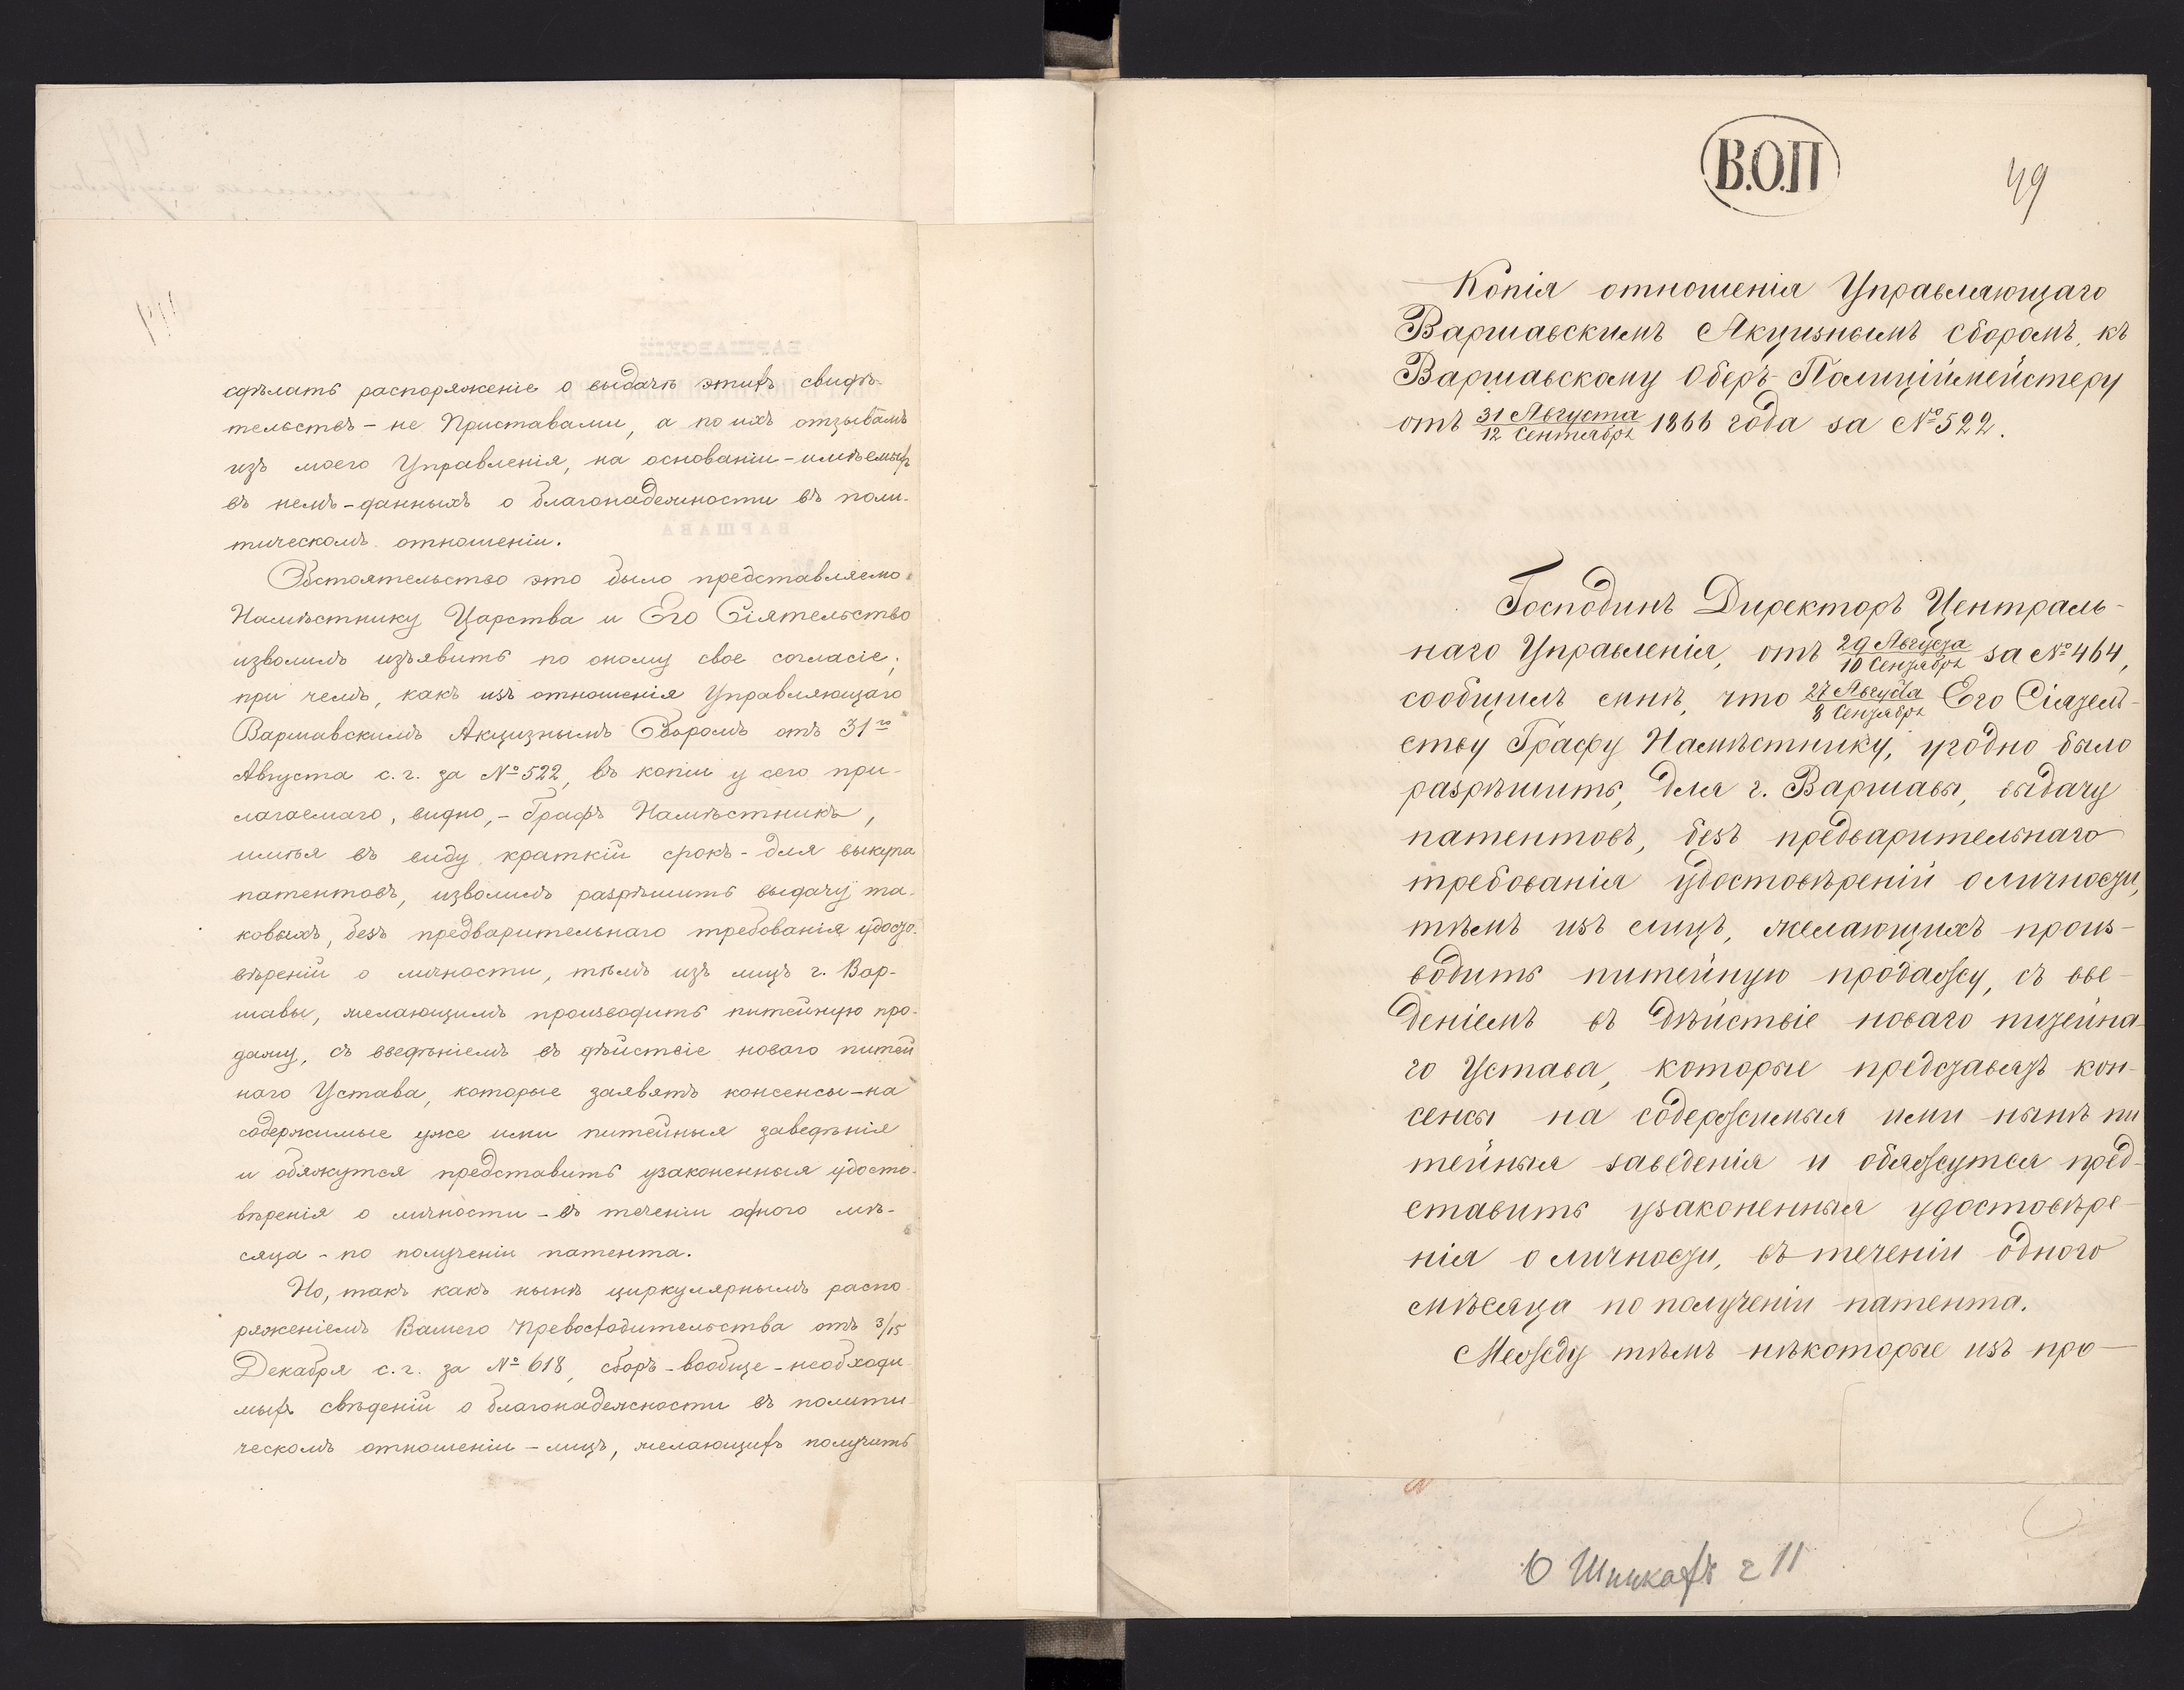 сдѣлать распоряженіе о выдачѣ этихъ свидѣ-
тельствъ - не Приставами, а по ихъ отзывамъ
изъ моего Управленія, на основаніи - имѣемыхъ
въ немъ - данныхъ о благонадежности въ поли-
тическомъ отношеніи.
Обстоятельство это было представляемо
Намѣстнику Царства и Его Сіятельство
изволилъ изъявить по оному свое согласіе;
при чемъ, какъ изъ отношенія Управляющаго
Варшавскимъ Акцизнымъ Сборомъ отъ 31го
Августа с. г. за № 522, въ копіи у сего при-
лагаемаго, видно, - Графъ Намѣстникъ,
имѣя въ виду краткій срокъ - для выкупа
патентовъ, изволилъ разрѣшить выдачу та-
ковыхъ, безъ предварительнаго требованія удосто-
вѣреній о личности, тѣмъ изъ лицъ г. Вар-
шавы, желающимъ производить питейную про-
дажу, съ введѣніемъ въ дѣйствіе новаго питей
наго Устава, которые заявятъ консенсы - на
содержимые уже ими питейныя заведѣнія
и обяжутся представить узаконенныя удосто-
вѣренія о личности - въ теченіи одного мѣ-
сяца - по полученіи патента.
Но, такъ какъ нынѣ циркулярнымъ распо
ряженіемъ Вашего Превосходительства отъ 3/15
Декабря с. г. за № 618, сборъ - вообще - необходи
мыхъ свѣденій о благонадежности въ полити
ческомъ отношеніи - лицъ, желающихъ получить
В.О.П
49
Копія отношенія Управляющаго
Варшавскимъ Акцизнымъ Сборомъ, къ
Варшавскому Оберъ-Полиціймейстеру
отъ 31 Августа/12 Сентября 1866 года за № 522.
Господинъ Директоръ Централь-
наго Управленія, отъ 29 Августа/10 Сентября за № 464,
сообщилъ мнѣ, что 27 Августа/8 Сентября Его Сіятель-
ству Графу Намѣстнику, угодно было
разрѣшить, для г. Варшавы, выдачу
патентовъ, безъ предварительнаго
требованія удостовѣреній о личности,
тѣмъ изъ лицъ, желающихъ произ-
водить питейную продажу, съ вве-
деніемъ въ дѣйствіе новаго питейна-
го Устава, которые представятъ кон-
сенсы на содержимыя ими нынѣ пи
тейныя заведенія и обяжутся пред-
ставить узаконенныя удостовѣре-
нія о личности, въ теченіи одного
мѣсяца по полученіи патента.
Между тѣмъ нѣкоторые изъ про-
О Шинкахъ г 11